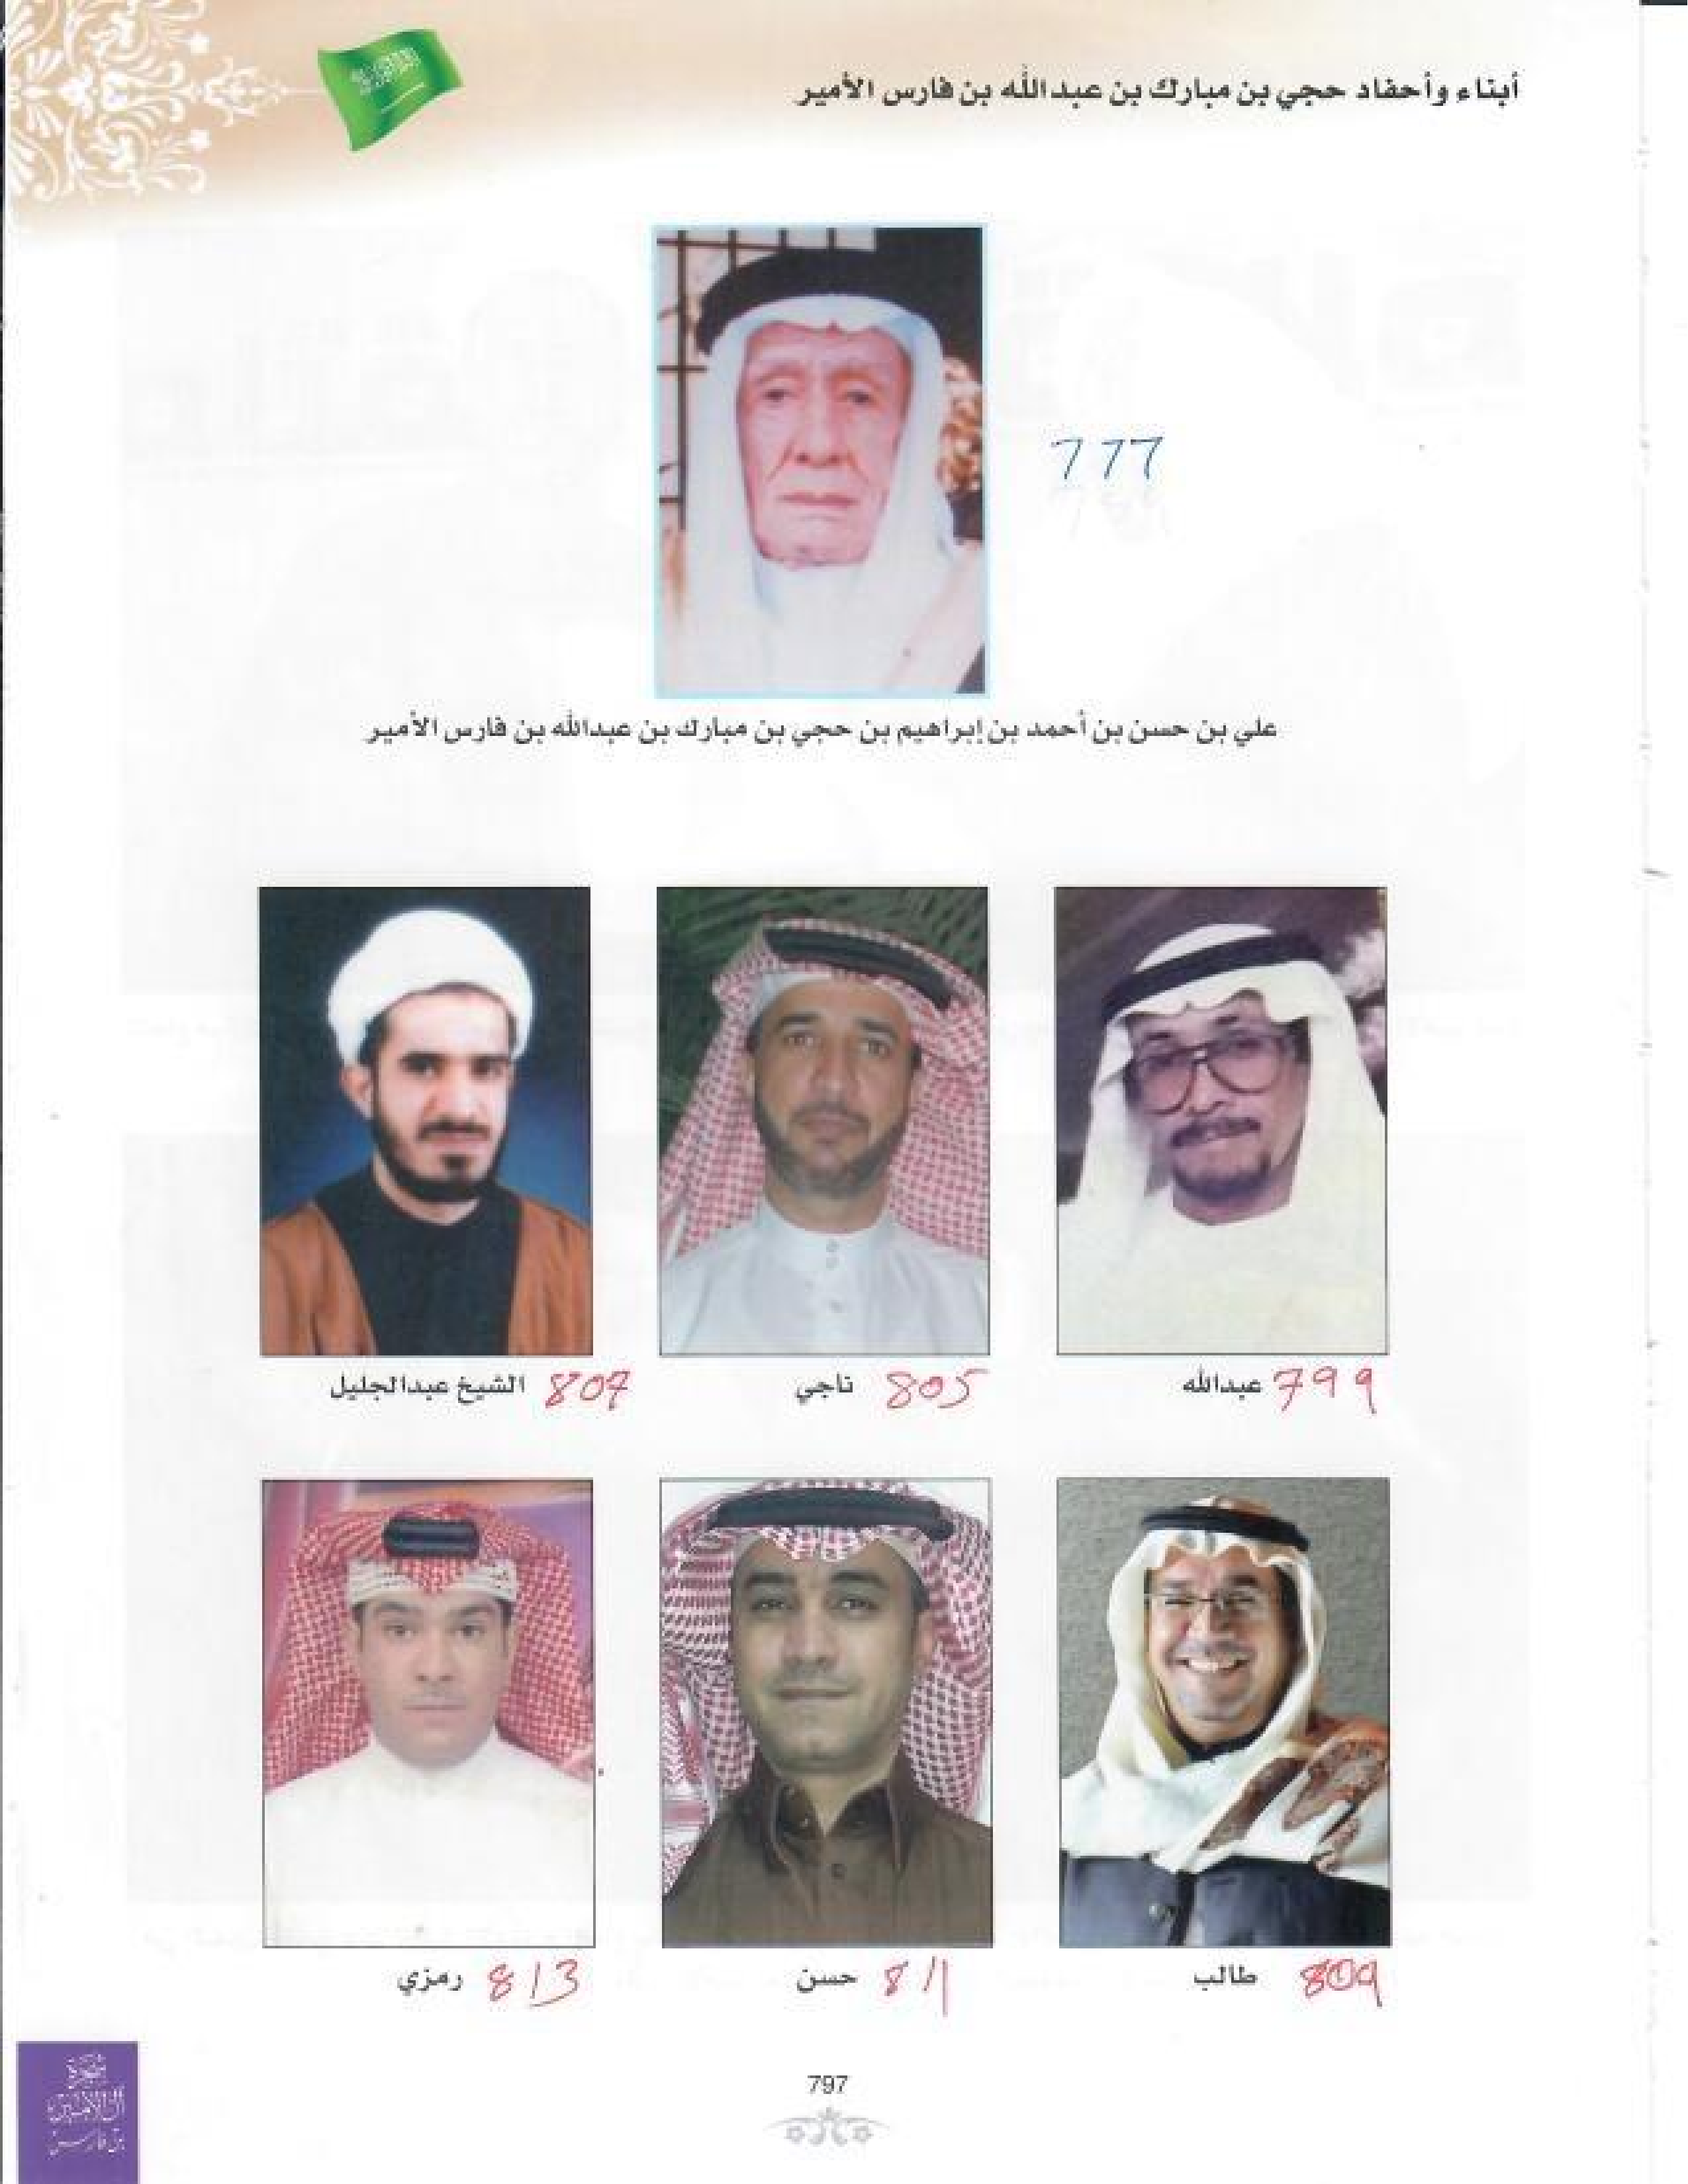 أبناء وأحفاد حجي بن مبارك بن عبدالله بن فارس الأمير
777
علي بن حسن بن أحمد بن إبراهيم بن حجي بن مبارك بن عبدالله بن فارس الأمير
799 عبدالله
805 ناجي
807 الشيخ عبدالجليل
809 طالب
811 حسن
813 رمزي
شجرة
بن فارس
797